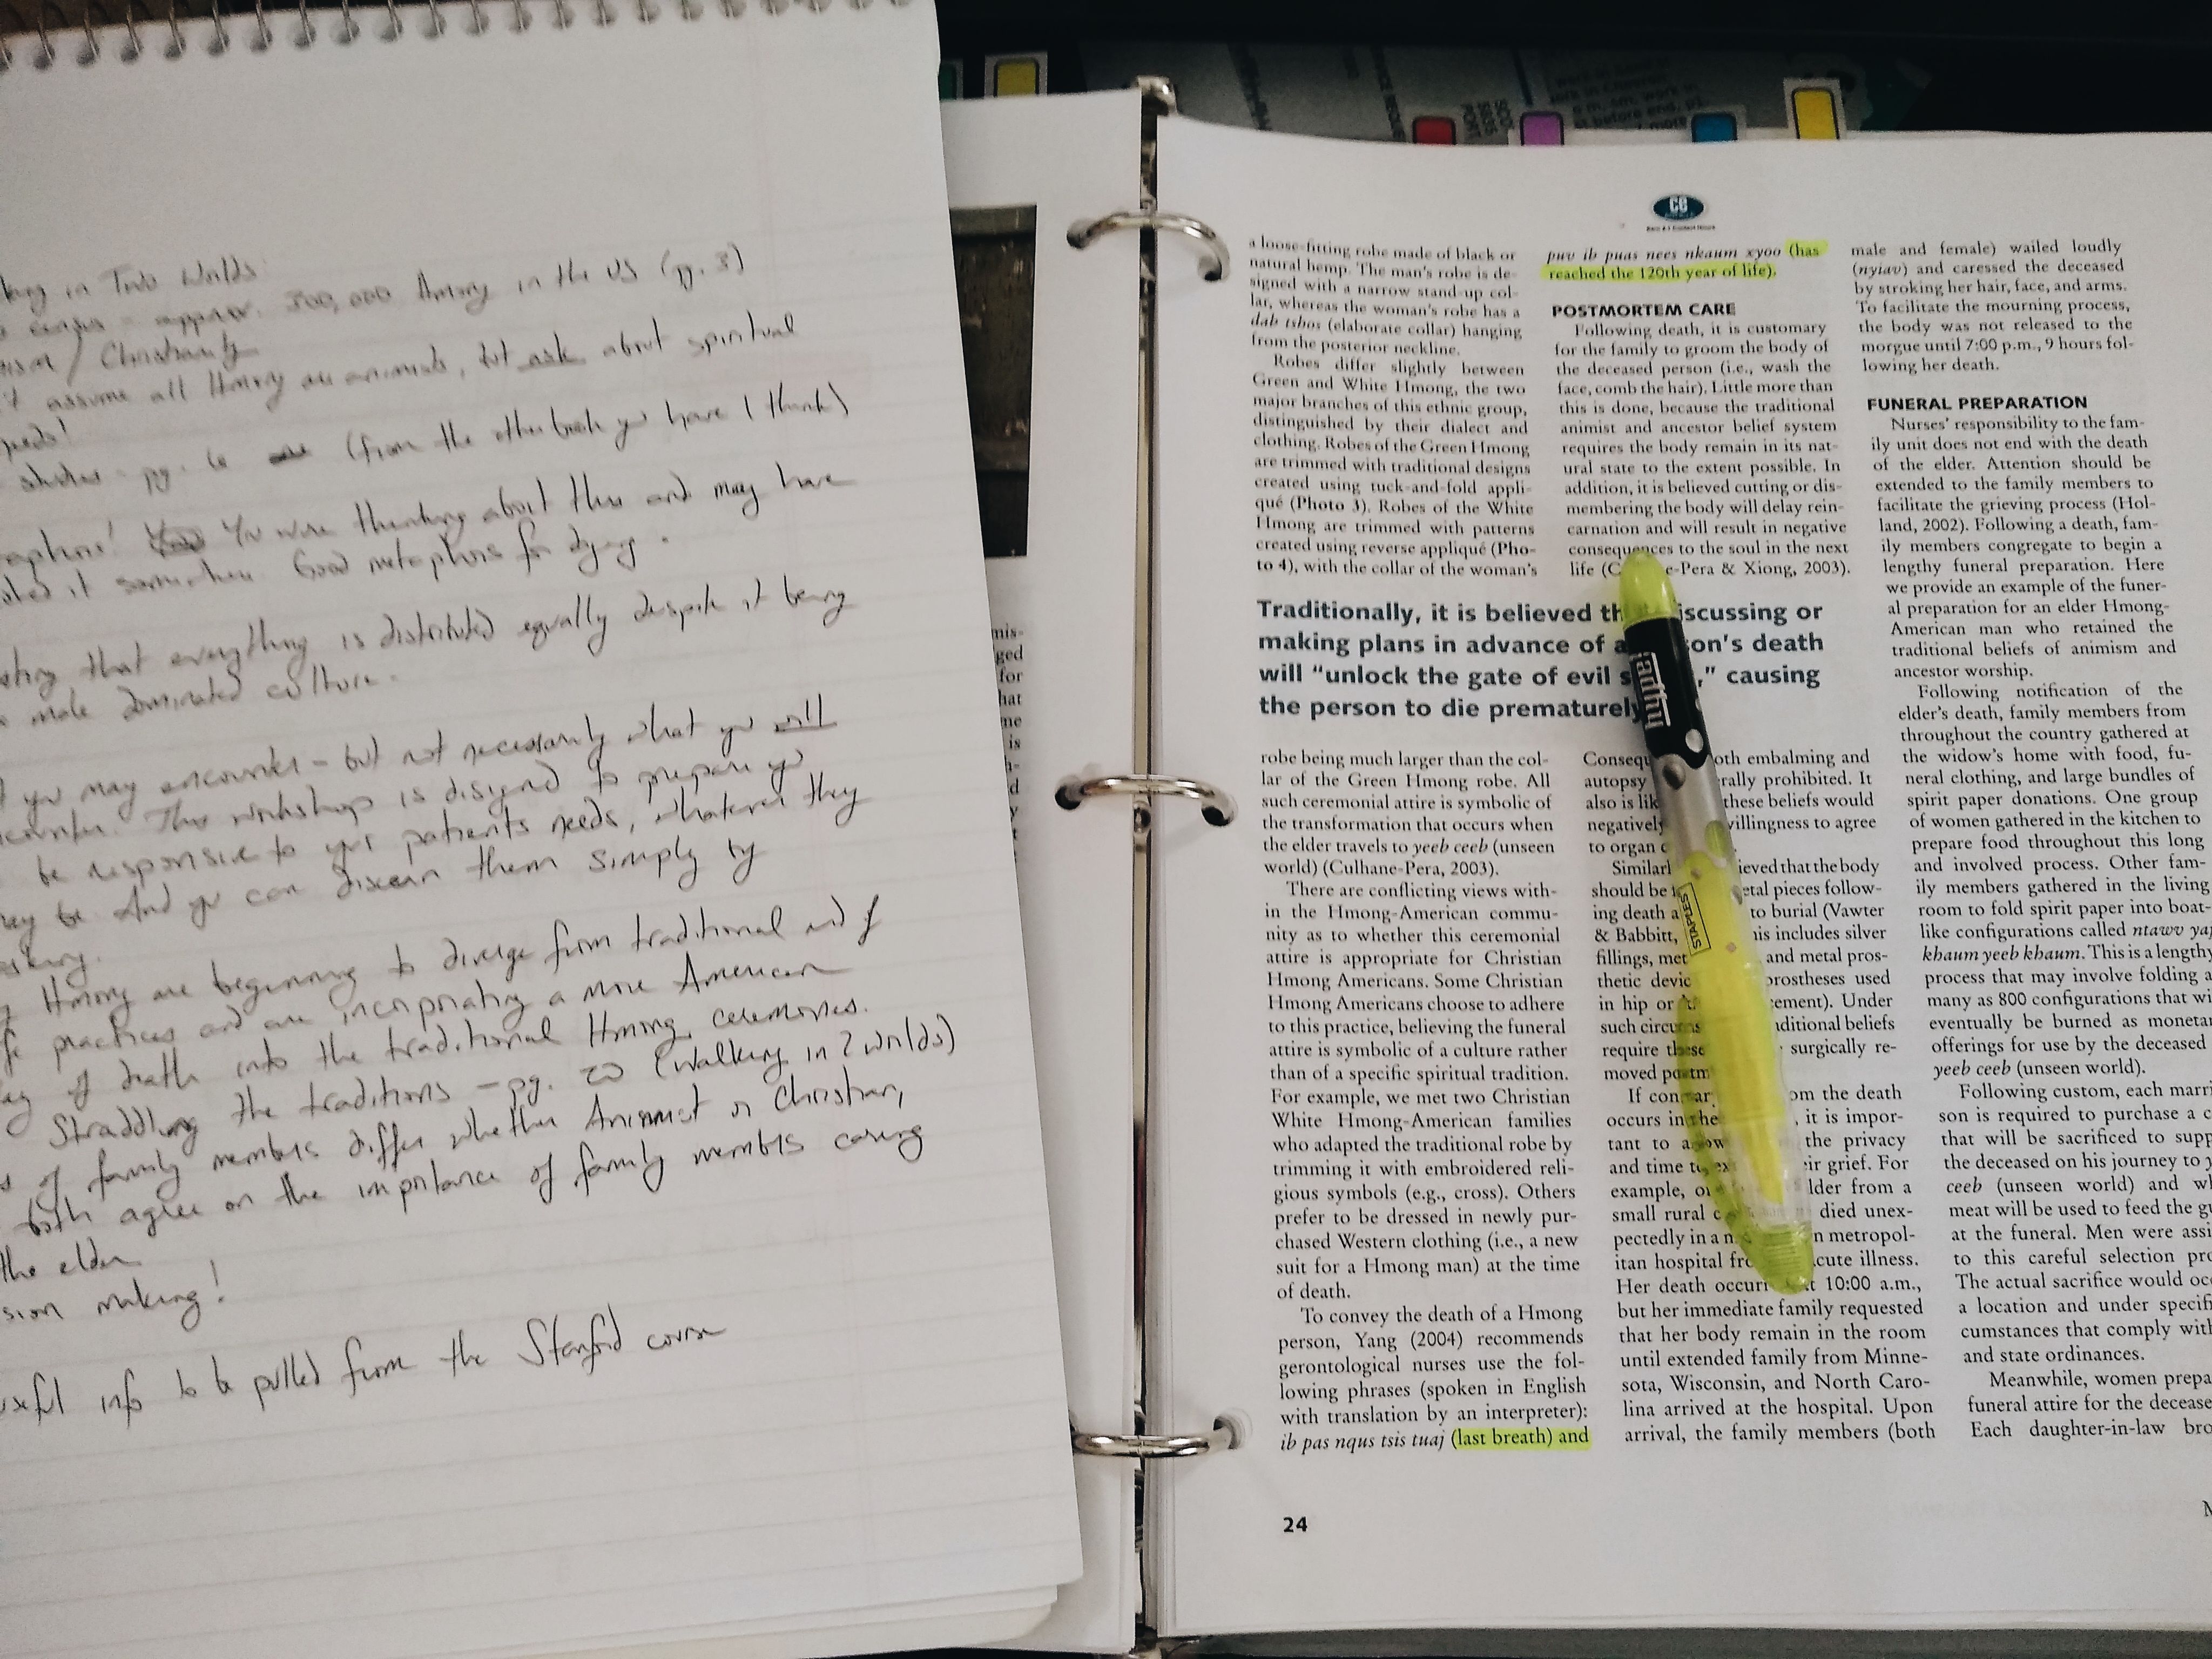 in Two Worlds
census - approx. 300,000 Hmong in the US (pg. 3)
/ Christianity
assume all Hmong are animists, but ask about spiritual
needs!
studies - pg. 6 (from the other book you have I think)
You were thinking about this and may have
it somewhere. Good metaphors for dying.
that everything is distributed equally despite it being
male dominated culture.
you may encounter - but not necessarily what you will
encounter. This workshop is designed to prepare you
be responsive to your patients needs, whatever they
may be. And you can discern them simply by
asking.
Hmong are beginning to diverge from traditional end of
life practices and are incorporating a more American
of death into the traditional Hmong ceremonies.
Straddling the traditions - pg. 20 (Walking in 2 worlds)
of family members differ whether Animist or Christian,
both agree on the importance of family members caring
the elder
making!
useful info to be pulled from the Stanford course
mis-
ged
for
hat
me
is
CE
a loose-fitting robe made of black or
natural hemp. The man's robe is de-
signed with a narrow stand-up col-
lar, whereas the woman's robe has a
dab tshos (elaborate collar) hanging
from the posterior neckline.
Robes differ slightly between
Green and White Hmong, the two
major branches of this ethnic group,
distinguished by their dialect and
clothing. Robes of the Green Hmong
are trimmed with traditional designs
created using tuck-and-fold appli-
qué (Photo 3). Robes of the White
Hmong are trimmed with patterns
created using reverse appliqué (Pho-
to 4), with the collar of the woman's
Traditionally, it is believed th iscussing or
making plans in advance of a on's death
will "unlock the gate of evil s ," causing
the person to die prematurely
robe being much larger than the col-
lar of the Green Hmong robe. All
such ceremonial attire is symbolic of
the transformation that occurs when
the elder travels to yeeb ceeb (unseen
world) (Culhane-Pera, 2003).
There are conflicting views with-
in the Hmong-American commu-
nity as to whether this ceremonial
attire is appropriate for Christian
Hmong Americans. Some Christian
Hmong Americans choose to adhere
to this practice, believing the funeral
attire is symbolic of a culture rather
than of a specific spiritual tradition.
For example, we met two Christian
White Hmong-American families
who adapted the traditional robe by
trimming it with embroidered reli-
gious symbols (e.g., cross). Others
prefer to be dressed in newly pur-
chased Western clothing (i.e., a new
suit for a Hmong man) at the time
of death.
To convey the death of a Hmong
person, Yang (2004) recommends
gerontological nurses use the fol-
lowing phrases (spoken in English
with translation by an interpreter):
ib pas nqus tsis tuaj (last breath) and
puv ib puas nees nkaum xyoo (has
reached the 120th year of life).
POSTMORTEM CARE
Following death, it is customary
for the family to groom the body of
the deceased person (i.e., wash the
face, comb the hair). Little more than
this is done, because the traditional
animist and ancestor belief system
requires the body remain in its nat-
ural state to the extent possible. In
addition, it is believed cutting or dis-
membering the body will delay rein-
carnation and will result in negative
consequences to the soul in the next
life (C e-Pera & Xiong, 2003).
Consequ oth embalming and
autopsy rally prohibited. It
also is lik these beliefs would
negatively villingness to agree
to organ
Similarl ieved that the body
should be etal pieces follow-
ing death a to burial (Vawter
& Babbitt, is includes silver
fillings, met and metal pros-
thetic devic prostheses used
in hip or cement). Under
such circums aditional beliefs
require these surgically re-
moved postm
If con om the death
occurs in the , it is impor-
tant to allow the privacy
and time to ex eir grief. For
example, on lder from a
small rural c died unex-
pectedly in a n n metropol-
itan hospital fro cute illness.
Her death occurr t 10:00 a.m.,
but her immediate family requested
that her body remain in the room
until extended family from Minne-
sota, Wisconsin, and North Caro-
lina arrived at the hospital. Upon
arrival, the family members (both
male and female) wailed loudly
(nyiav) and caressed the deceased
by stroking her hair, face, and arms.
To facilitate the mourning process,
the body was not released to the
morgue until 7:00 p.m., 9 hours fol-
lowing her death.
FUNERAL PREPARATION
Nurses' responsibility to the fam-
ily unit does not end with the death
of the elder. Attention should be
extended to the family members to
facilitate the grieving process (Hol-
land, 2002). Following a death, fam-
ily members congregate to begin a
lengthy funeral preparation. Here
we provide an example of the funer-
al preparation for an elder Hmong-
American man who retained the
traditional beliefs of animism and
ancestor worship.
Following notification of the
elder's death, family members from
throughout the country gathered at
the widow's home with food, fu-
neral clothing, and large bundles of
spirit paper donations. One group
of women gathered in the kitchen to
prepare food throughout this long
and involved process. Other fam-
ily members gathered in the living
room to fold spirit paper into boat-
like configurations called ntawv yaj
khaum yeeb khaum. This is a lengthy
process that may involve folding a
many as 800 configurations that wi
eventually be burned as monetar
offerings for use by the deceased
yeeb ceeb (unseen world).
Following custom, each marri
son is required to purchase a c
that will be sacrificed to supp
the deceased on his journey to y
ceeb (unseen world) and wh
meat will be used to feed the gu
at the funeral. Men were assi
to this careful selection pro
The actual sacrifice would occ
a location and under specifi
cumstances that comply with
and state ordinances.
Meanwhile, women prepa
funeral attire for the decease
Each daughter-in-law bro
STAPLES
24